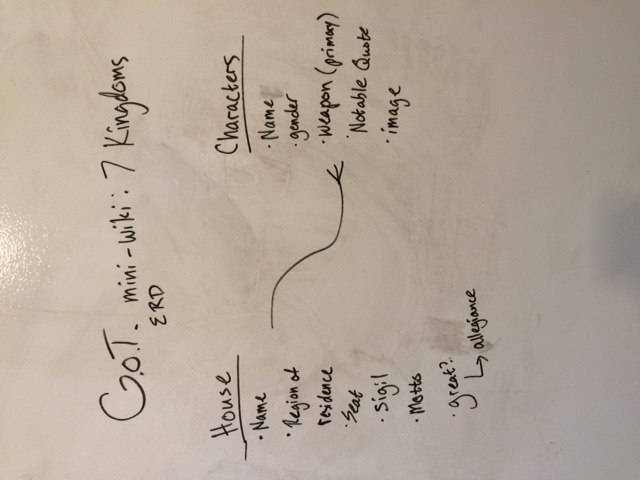 G.o.T. mini-wiki: 7 Kingdoms
ERD
House
· Name
· Region of
residence
· Seat
· Sigil
· Motto
· great?
↳ allegiance
Characters
· Name
· gender
· Weapon (primary)
· Notable Quote
· image